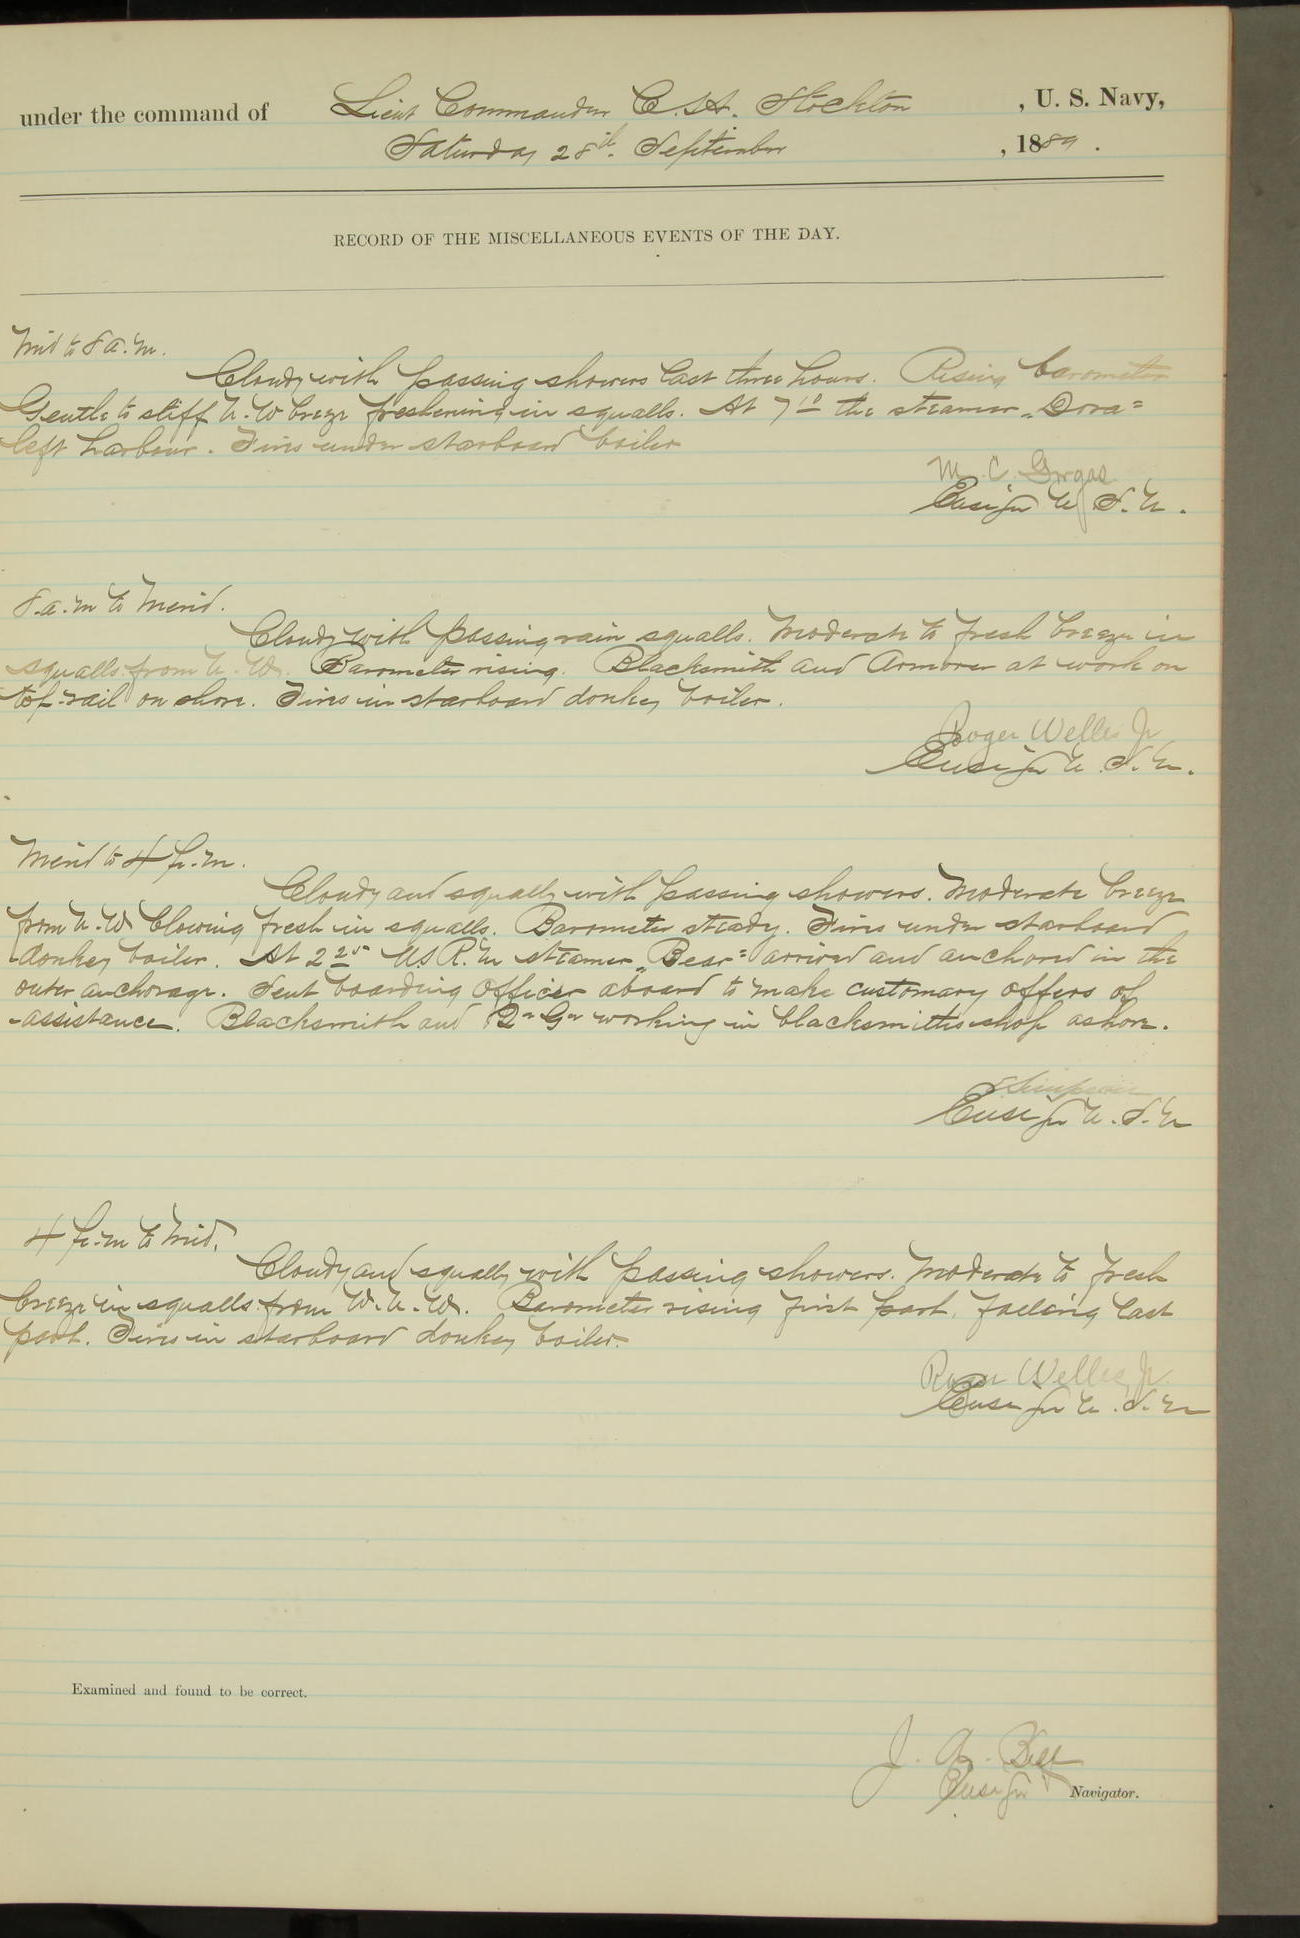 under the command of Lieut Commander C. H. Stockton , U. S. Navy,
Saturday 28th. September , 1889 .
RECORD OF THE MISCELLANEOUS EVENTS OF THE DAY.
Mid to 8 a.m.
Cloudy with passing showers last three hours. Rising barometer
Gentle to stiff N.W breeze freshening in squalls. At 7 10 the steamer "Dora"
left harbour. Fires under starboard boiler
M. C. Gorgas
Ensign U S. N.
8 a.m to Merid.
Cloudy with passing rain squalls. Moderate to fresh breeze in
squalls from N.W. Barometer rising. Blacksmith and Armorer at work on
top-rail on shore. Fires in starboard donkey boiler.
Roger Welles Jr
Ensign U.S.N.
Merid to 4 p.m.
Cloudy and squally with passing showers. Moderate breeze
from N.W blowing fresh in squalls. Barometer steady. Fires under starboard
donkey boiler. At 2 25 U.S R.M steamer "Bear" arrived and anchored in the
outer anchorage. Sent boarding officer aboard to make customary offers of
assistance. Blacksmith and working in blacksmiths shop ashore.
Simpson
Ensign U.S.N
4 p.m to Mid.
Cloudy and squally with passing showers. Moderate to fresh
breeze in squalls from W.N.W. Barometer rising first part, falling last
part. Fires in starboard donkey boiler.
Roger Welles, Jr.
Ensign U.S.N
Examined and found to be correct.
J. A. Bell
Ensign Navigator.